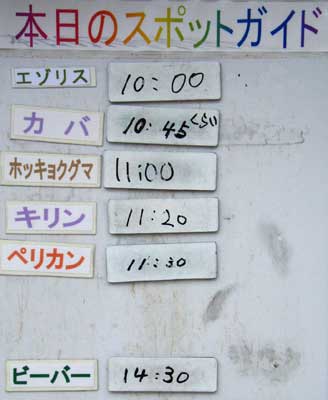 本日のスポットガイド
エゾリス 10:00
カバ 10:45くらい
ホッキョクグマ 11:00
キリン 11:20
ペリカン 11:30
ビーバー 14:30